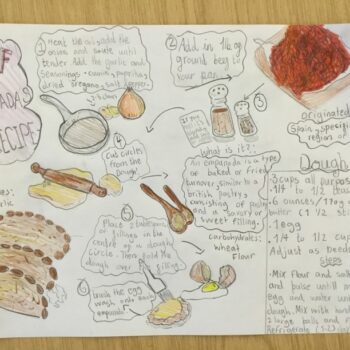 F
ADAS
RECIPE
① Heat the oil, add the
onions and saute until
tender. Add the garlic and
seasonings - cumin, paprika,
dried oregano, salt, pepper.
② Add in 1lb og
ground beef to
your pan
③
④ Cut circles
from the
dough!
What is it?:
An empanada is a type
of baked or fried
turnover, similar to a
british pastry
consisting of pastry
and a savory or
sweet filling.
Carbohydrates:
Wheat
flour
⑤ Place 2 tablespoon
fillings in the
centre of a dough
circle. Then fold the
dough over filling
⑥ brush the egg
wash onto each
empanada
originated
Spain, specific
region of
Dough
3 cups all purpos
1/4 to 1/2 teas
6 ounces/170g
butter (1 1/2 st
1 egg
1/4 to 1/2 cup
Adjust as needed
steps
•Mix flour and salt
and pulse until m
egg and water un
dough. Mix with hand
2 large balls and f
Refrigerate (1-2)